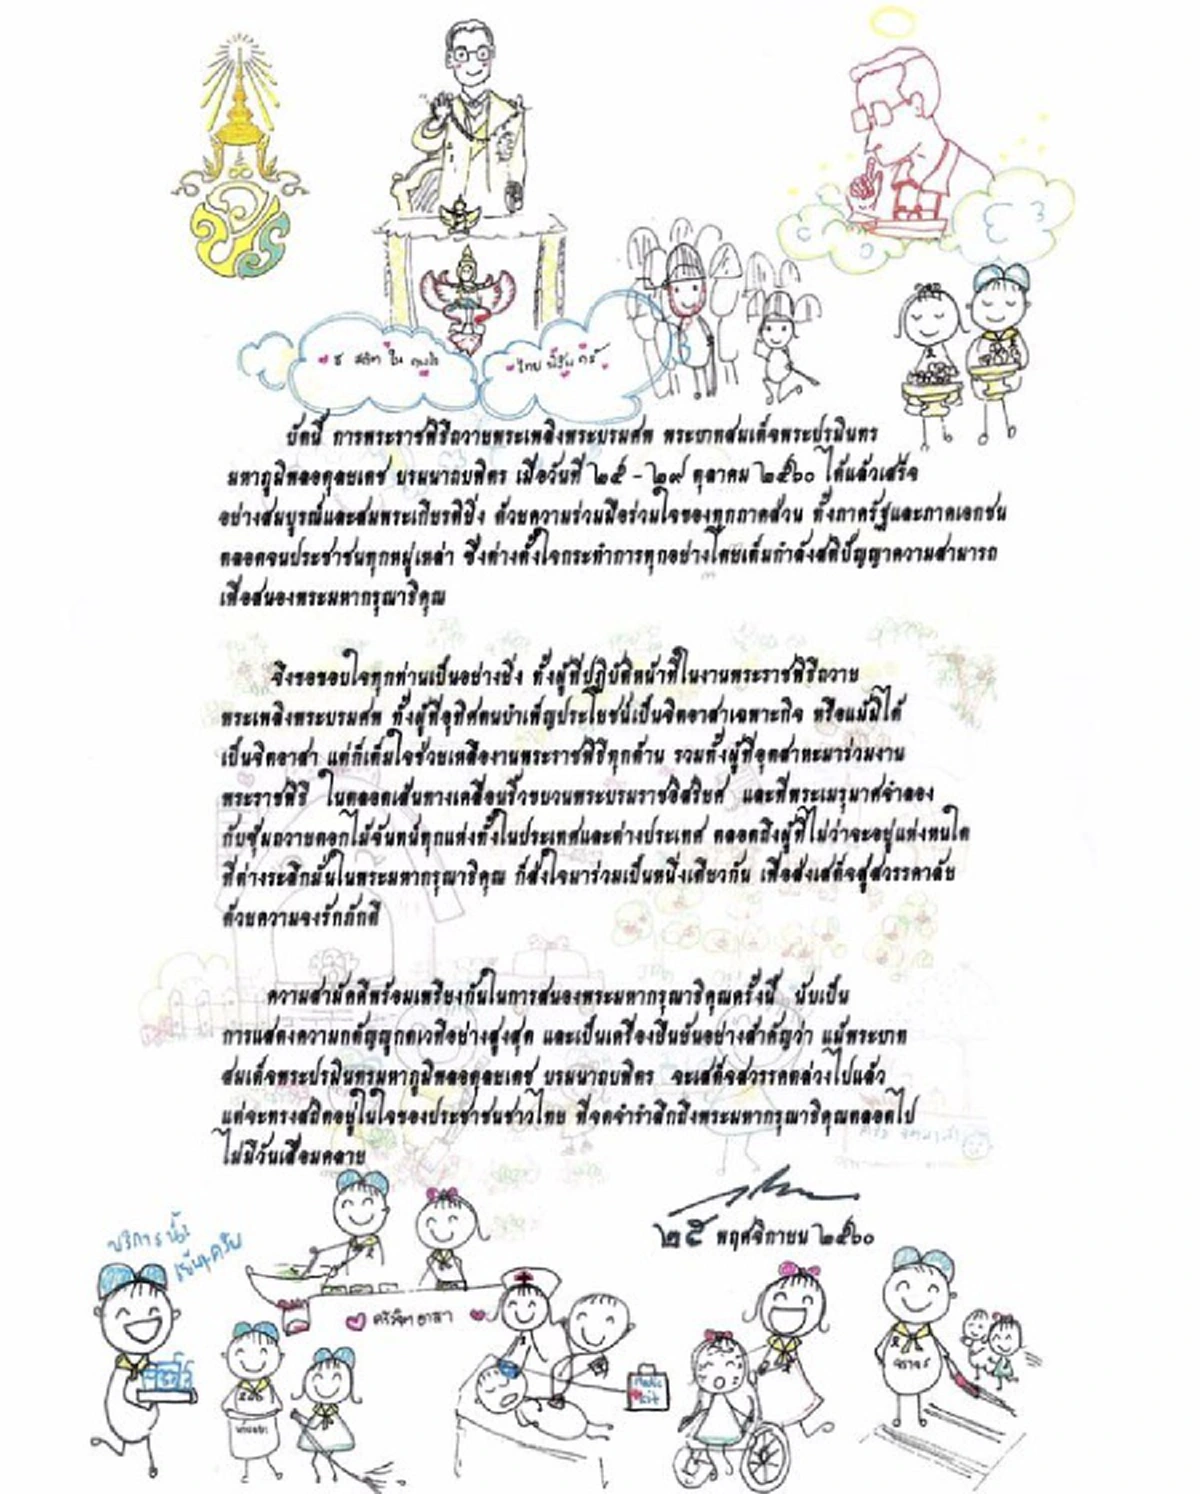 ธ สถิต ใน ดวงใจ
ไทย นิรันดร์
บัดนี้ การพระราชพิธีถวายพระเพลิงพระบรมศพ พระบาทสมเด็จพระปรมินทร
มหาภูมิพลอดุลยเดช บรมนาถบพิตร เมื่อวันที่ ๒๕ - ๒๙ ตุลาคม ๒๕๖๐ ได้แล้วเสร็จ
อย่างสมบูรณ์และสมพระเกียรติยิ่ง ด้วยความร่วมมือร่วมใจของทุกภาคส่วน ทั้งภาครัฐและภาคเอกชน
ตลอดจนประชาชนทุกหมู่เหล่า ซึ่งต่างตั้งใจกระทำการทุกอย่างโดยเต็มกำลังสติปัญญาความสามารถ
เพื่อสนองพระมหากรุณาธิคุณ
จึงขอขอบใจทุกท่านเป็นอย่างยิ่ง ทั้งผู้ที่ปฏิบัติหน้าที่ในงานพระราชพิธีถวาย
พระเพลิงพระบรมศพ ทั้งผู้ที่อุทิศตนบำเพ็ญประโยชน์เป็นจิตอาสาเฉพาะกิจ หรือแม้มิได้
เป็นจิตอาสา แต่ก็เต็มใจช่วยเหลืองานพระราชพิธีทุกด้าน รวมทั้งผู้ที่อุตสาหะมาร่วมงาน
พระราชพิธี ในตลอดเส้นทางเคลื่อนริ้วขบวนพระบรมราชอิสริยยศ และที่พระเมรุมาศจำลอง
กับซุ้มถวายดอกไม้จันทน์ทุกแห่งทั้งในประเทศและต่างประเทศ ตลอดถึงผู้ที่ไม่ว่าจะอยู่แห่งหนใด
ที่ต่างระลึกมั่นในพระมหากรุณาธิคุณ ก็ส่งใจมาร่วมเป็นหนึ่งเดียวกัน เพื่อส่งเสด็จสู่สวรรคาลัย
ด้วยความจงรักภักดี
ความสามัคคีพร้อมเพรียงกันในการสนองพระมหากรุณาธิคุณครั้งนี้ นับเป็น
การแสดงความกตัญญูกตเวทีอย่างสูงสุด และเป็นเครื่องยืนยันอย่างสำคัญว่า แม้พระบาท
สมเด็จพระปรมินทรมหาภูมิพลอดุลยเดช บรมนาถบพิตร จะเสด็จสวรรคตล่วงไปแล้ว
แต่จะทรงสถิตอยู่ในใจของประชาชนชาวไทย ที่จดจำรำลึกถึงพระมหากรุณาธิคุณตลอดไป
ไม่มีวันเสื่อมคลาย
๒๕ พฤศจิกายน ๒๕๖๐
บริการน้ำ
เย็นๆครับ
ครัวจิตอาสา
Medic
kit
จราจร